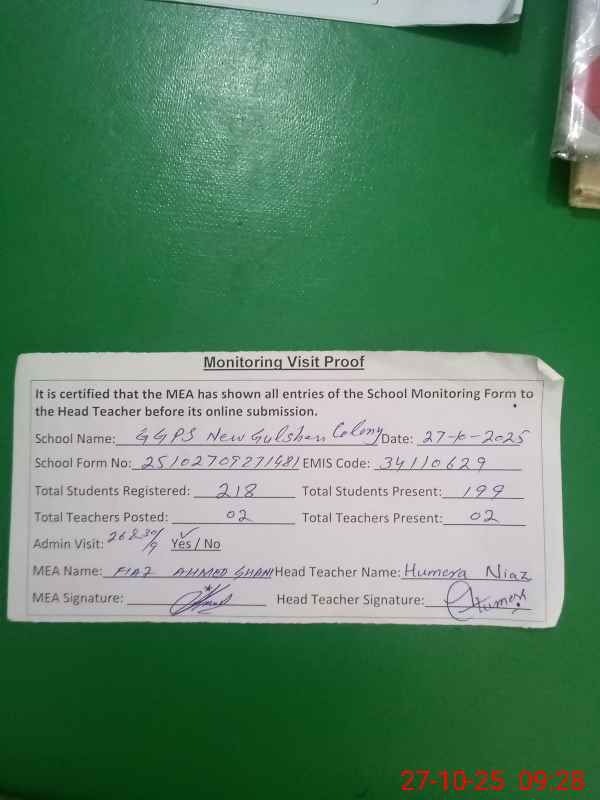 Monitoring Visit Proof
It is certified that the MEA has shown all entries of the School Monitoring Form to
the Head Teacher before its online submission.
School Name: GGPS New Gulshan Colony Date: 27-10-2025
School Form No: 25102709271481 EMIS Code: 34110629
Total Students Registered: 218 Total Students Present: 199
Total Teachers Posted: 02 Total Teachers Present: 02
Admin Visit: 26830/9 Yes / No
MEA Name: FIAZ AHMED GHANI Head Teacher Name: Humera Niaz
MEA Signature: Head Teacher Signature: Humera
27-10-25 09:28